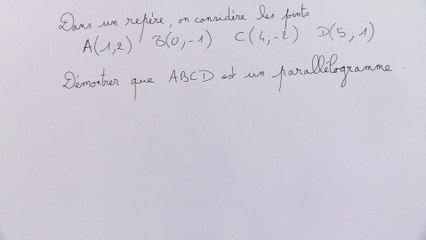 Dans un repère, on considère les points
A(1,2) B(0,-1) C(4,-2) D(5,1)
Démontrer que ABCD est un parallélogramme.